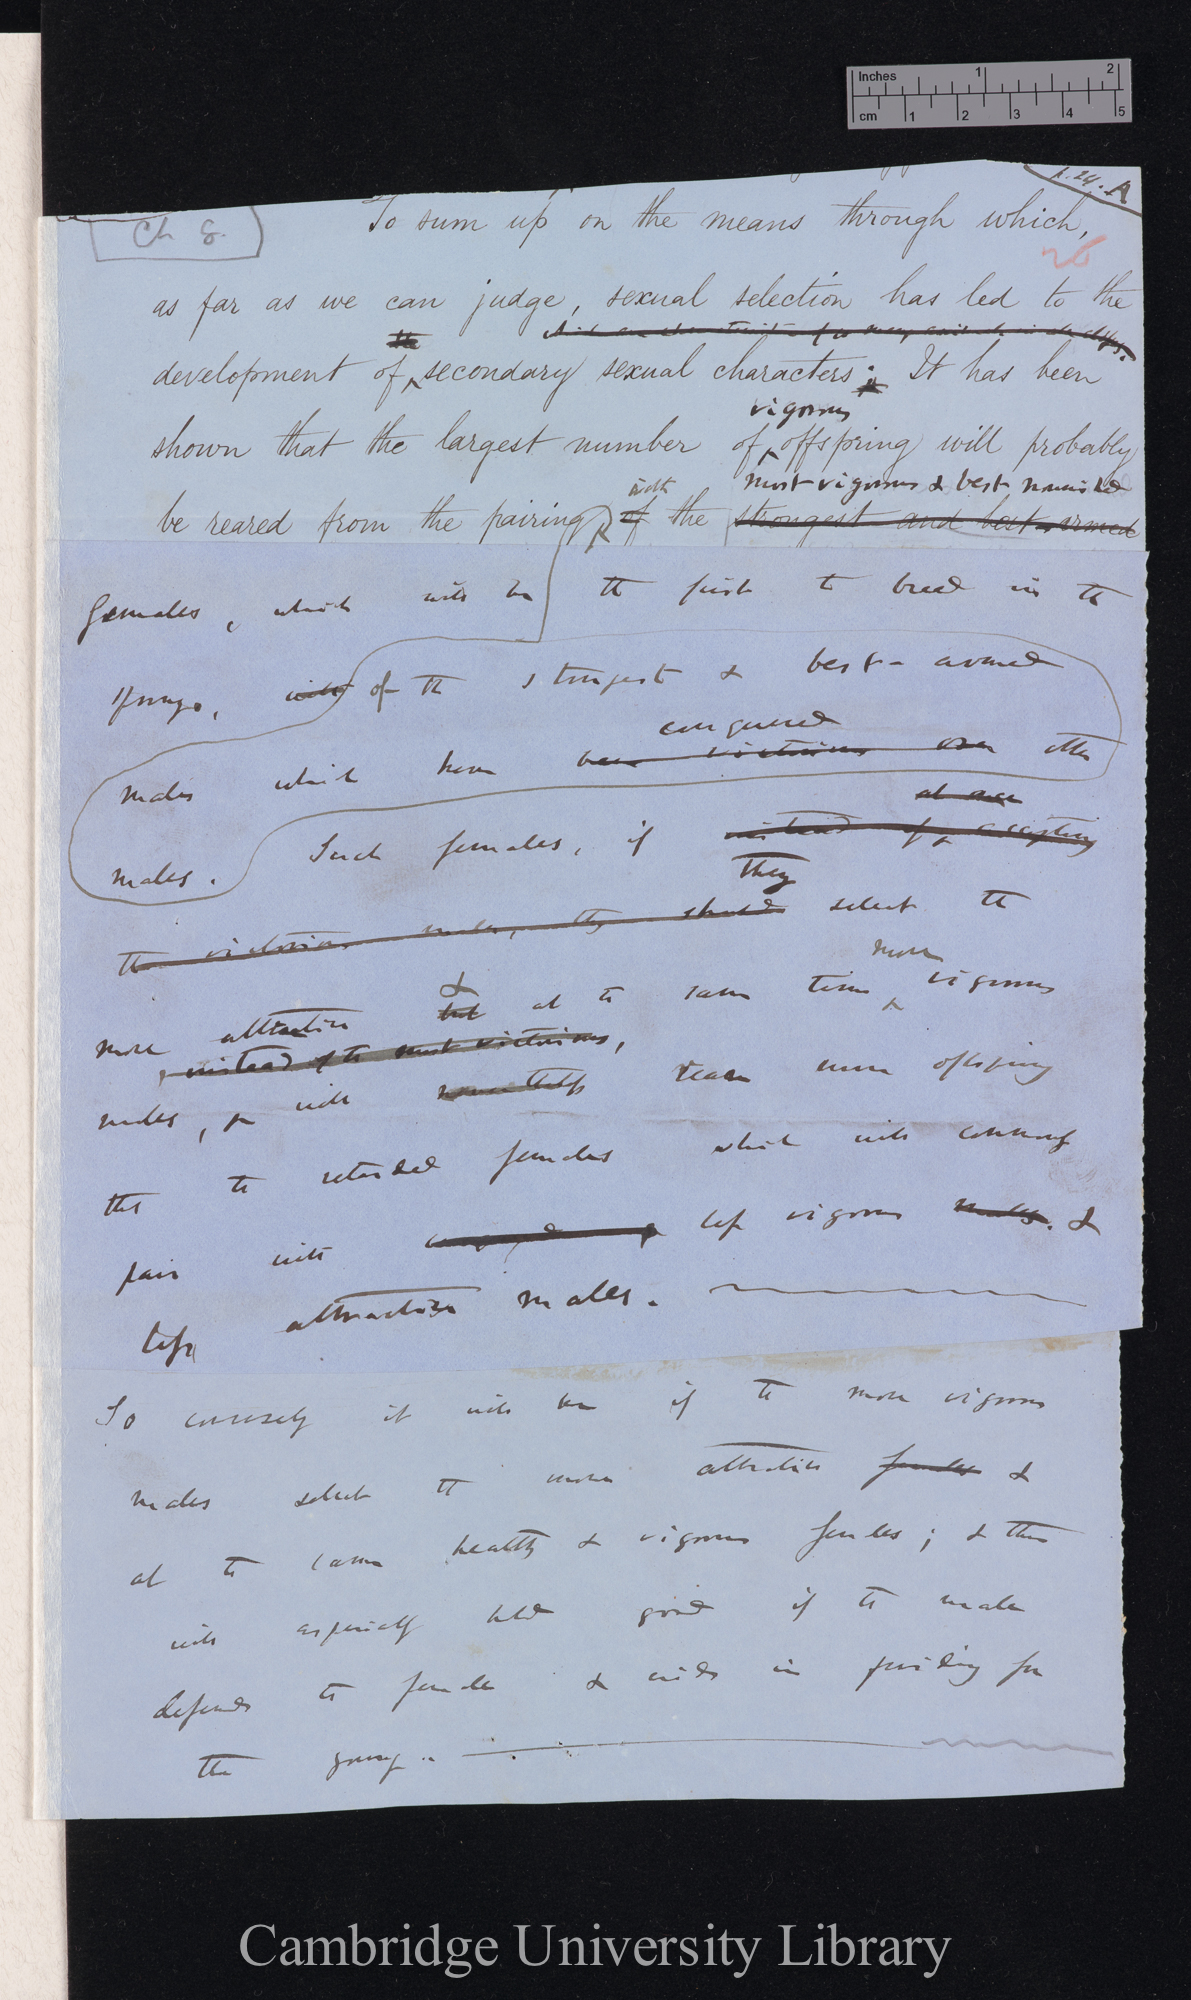 Inches 1 2
cm 1 2 3 4 5
p. 24. A
Ch 8.
To sum up on the means through which,
26
as far as we can judge, sexual selection has led to the
the
development of secondary sexual characters; It has been
vigorous
shown that the largest number of offspring will probably
with most vigorous & best nourished
be reared from the pairing of the strongest and best-armed
females, which will be the first to breed in the
spring, with of the strongest & best-armed
conquered
males which have been victorious over other
at once
males. Such females, if instead of accepting
they
the victorious males, they should select the
more
& 
more attractive but at the same time vigorous
instead of the most victorious,
males, will nonetheless rear more offspring
than the retarded females which will commonly
pair with less vigorous males. &
less attractive males.
So conversely it will be if the more vigorous
males select the more attractive females &
at the same healthy & vigorous females; & this
will especially hold good if the male
defends the female & aids in providing for
the young.
Cambridge University Library